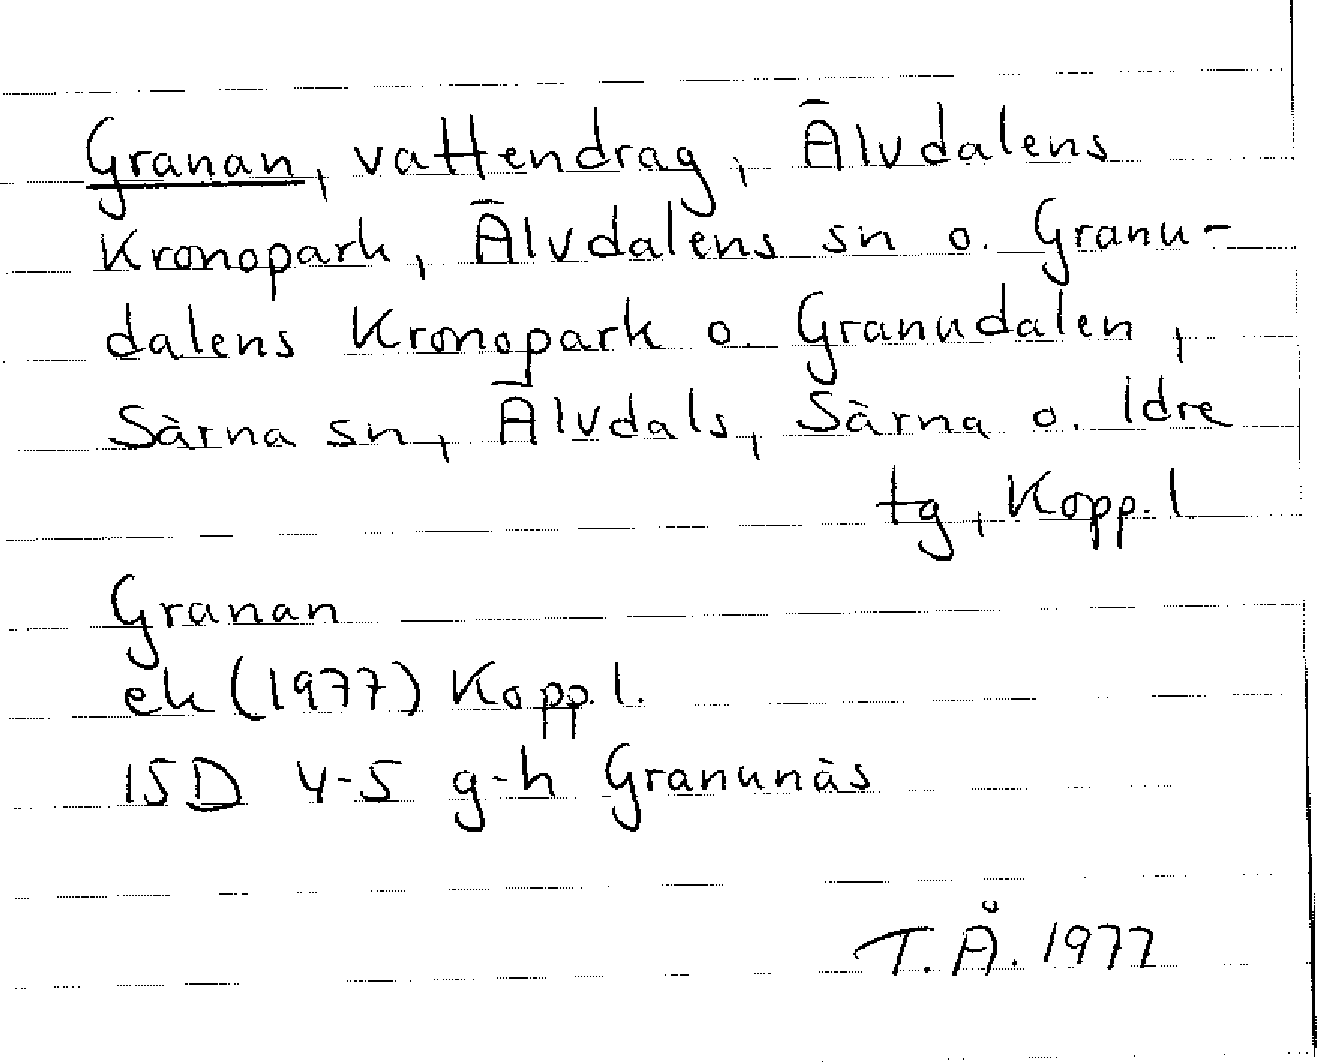 Granan, vattendrag, Älvdalens
Kronopark, Älvdalens sn o. Granu-
dalens Kronopark o. Granudalen,
Särna sn, Älvdals, Särna o. Idre
tg, Kopp. l
Granan
ek (1977) Kopp. l.
15D 4-5 g-h Granunäs
T. Å. 1977